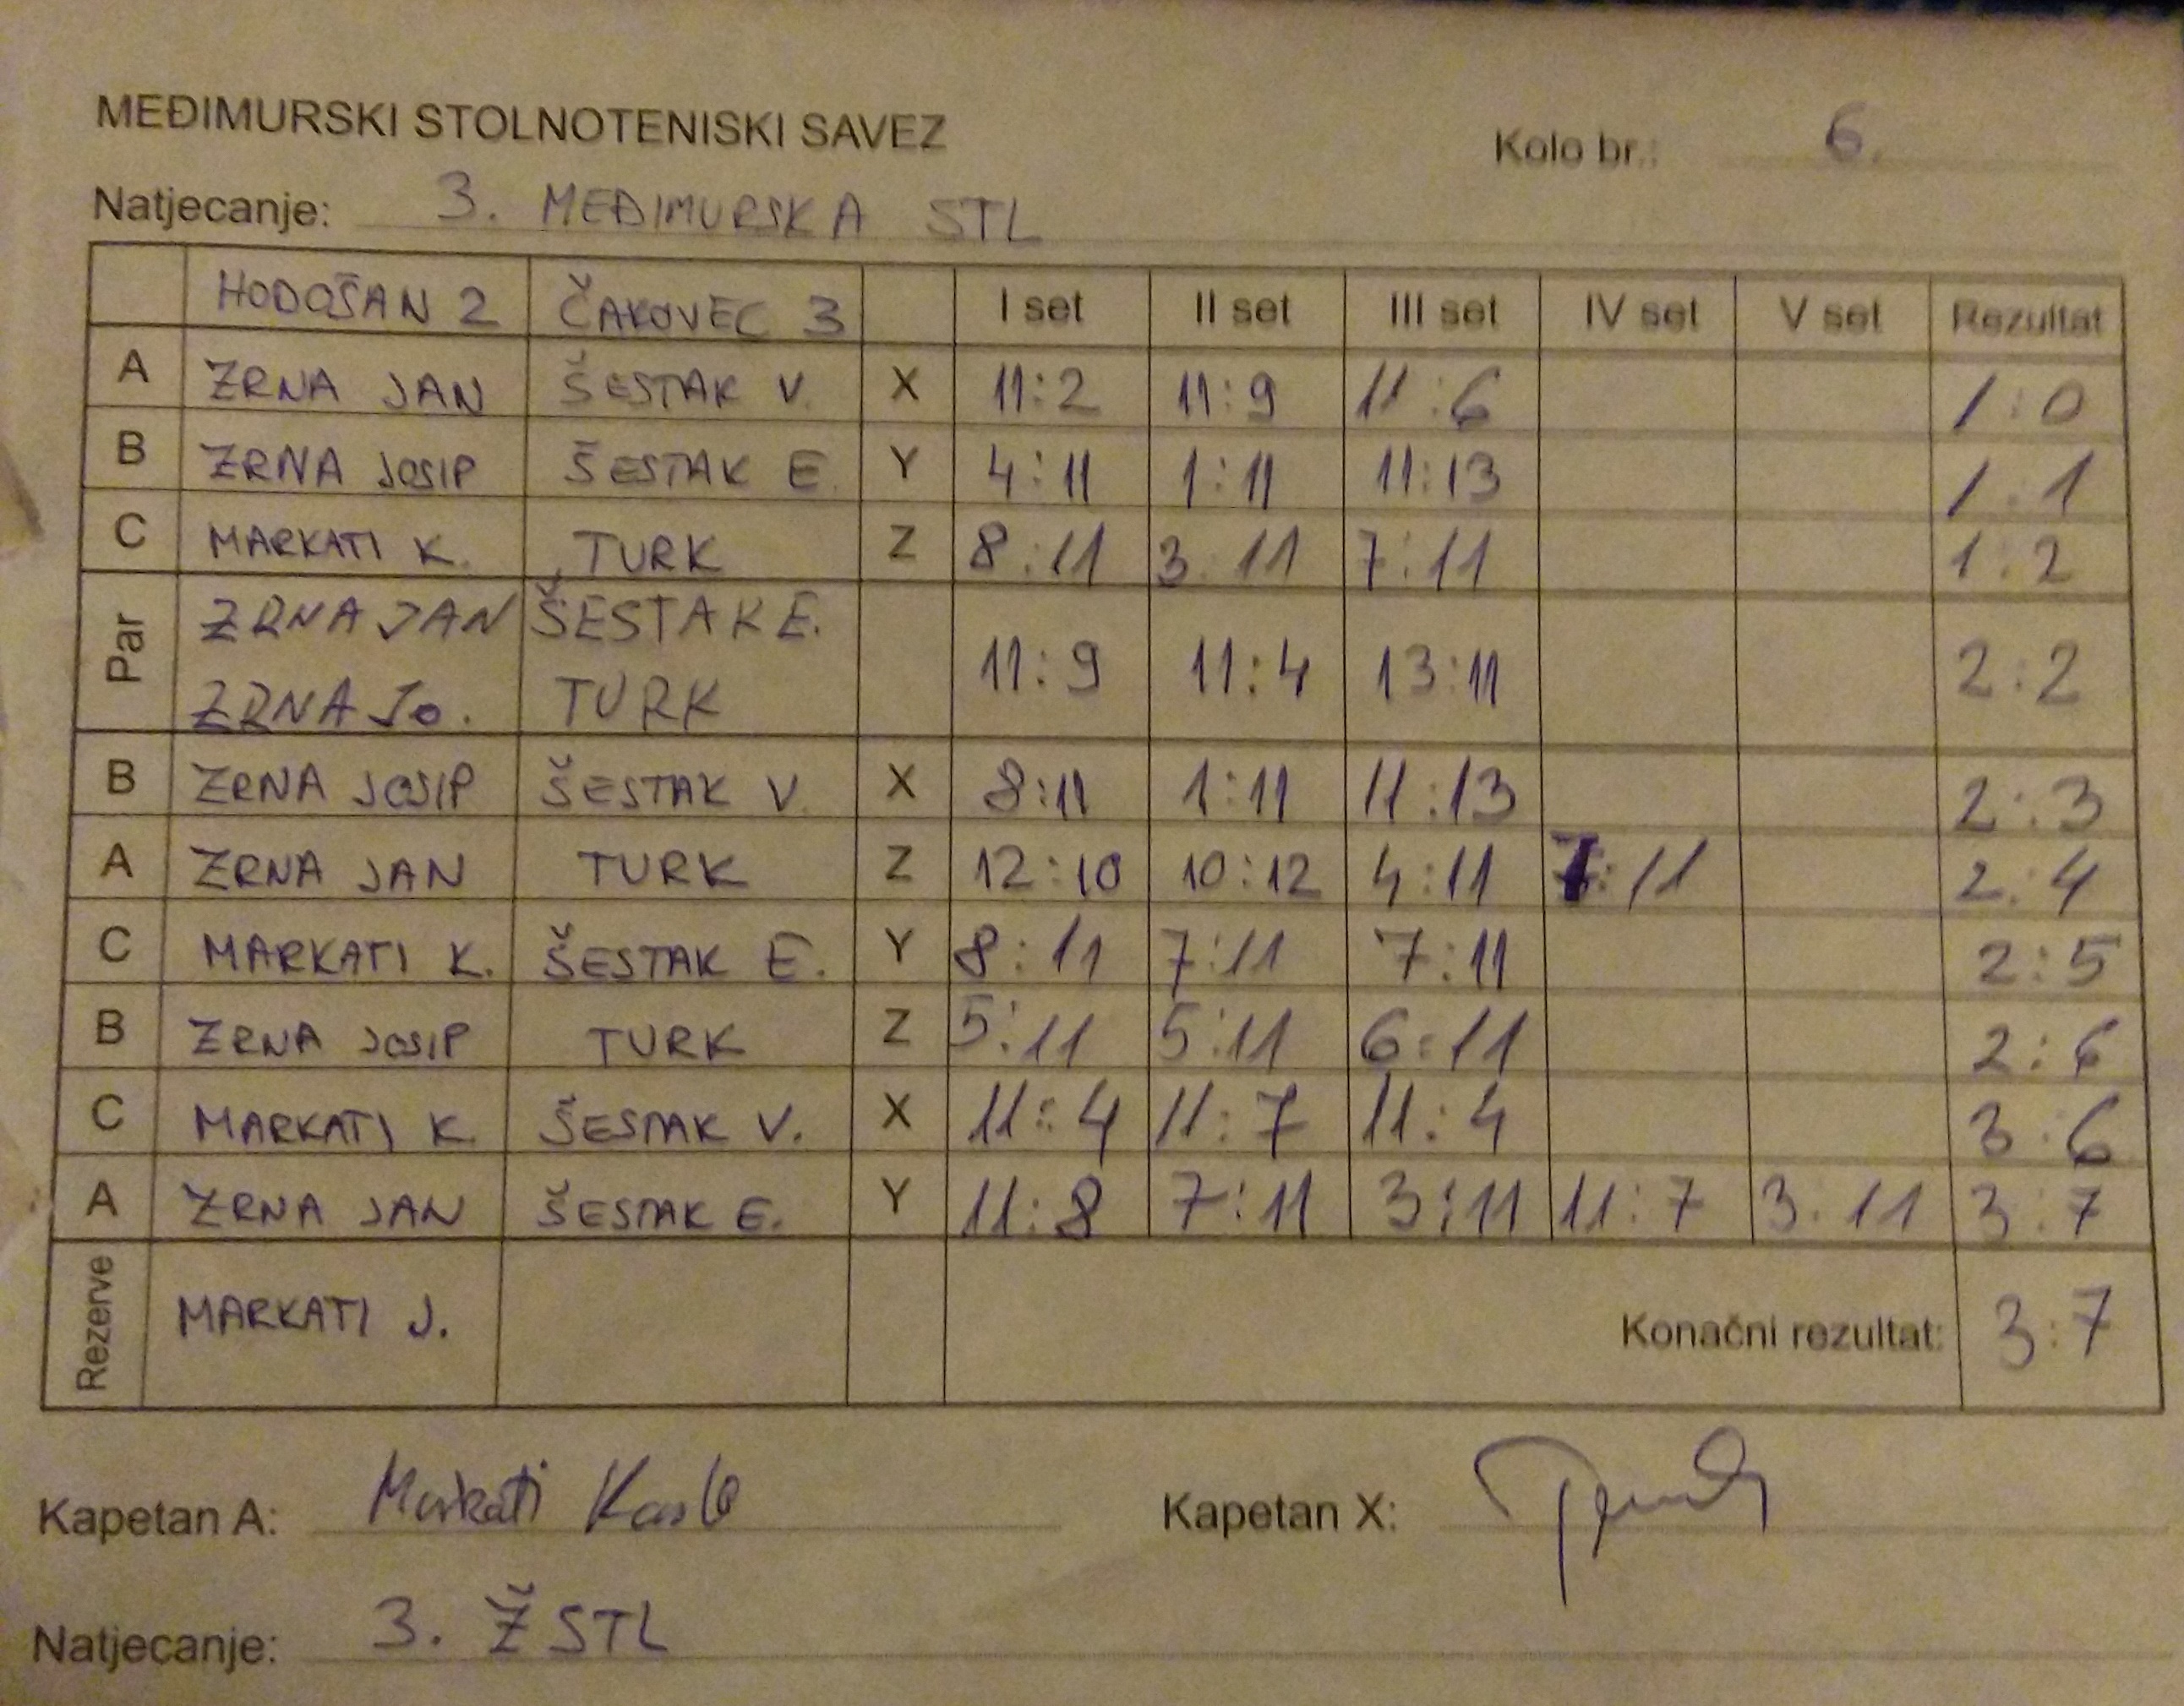 MEĐIMURSKI STOLNOTENISKI SAVEZ
Kolo br.: 6.
Natjecanje: 3. MEĐIMURSKA STL
HODOŠAN 2 ČAKOVEC 3 I set II set III set IV set V set Rezultat
A ZRNA JAN ŠESTAK V. X 11:2 11:9 11:6 1:0
B ZRNA JOSIP ŠESTAK E. Y 4:11 1:11 11:13 1:1
C MARKATI K. TURK Z 8:11 3:11 7:11 1:2
Par ZRNA JAN ŠESTAK E.
ZRNA JO. TURK 11:9 11:4 13:11 2:2
B ZRNA JOSIP ŠESTAK V. X 8:11 1:11 11:13 2:3
A ZRNA JAN TURK Z 12:10 10:12 4:11 7:11 2:4
C MARKATI K. ŠESTAK E. Y 8:11 7:11 7:11 2:5
B ZRNA JOSIP TURK Z 5:11 5:11 6:11 2:6
C MARKATI K. ŠESTAK V. X 11:4 11:7 11:4 3:6
A ZRNA JAN ŠESTAK E. Y 11:8 7:11 3:11 11:7 3:11 3:7
Rezerve MARKATI J. Konačni rezultat: 3:7
Kapetan A: Markati Karlo Kapetan X:
Natjecanje: 3. ŽSTL